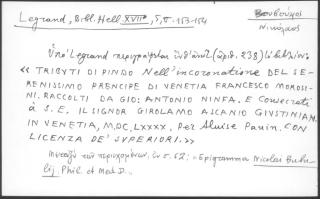 Legrand, Bibl. Hell. XVIIe, 5, σ. 153-154
Βουβούλιος
Νικόλαος
Ὑπὸ Legrand περιγράφεται ἐνθ' ἀνωτ. (ἀριθ. 238) τὸ βιβλίον:
« TRIBUTI DI PINDO Nell' incoronatione DEL SE-
RENISSIMO PRENCIPE DI VENETIA FRANCESCO MOROSI-
NI. RACCOLTI DA GIO: ANTONIO NINFA. E Consecrati
à S. E. IL SIGNOR GIROLAMO ASCANIO GIUSTINIAN.
IN VENETIA, M.DC.LXXXX, Per Aluise Pavin. CON
LICENZA DE' SUPERIORI. »
Μεταξὺ τῶν περιεχομένων, ἐν σ. 62: «Epigramma Nicolai Bubu-
lij. Phil. et Med. D.